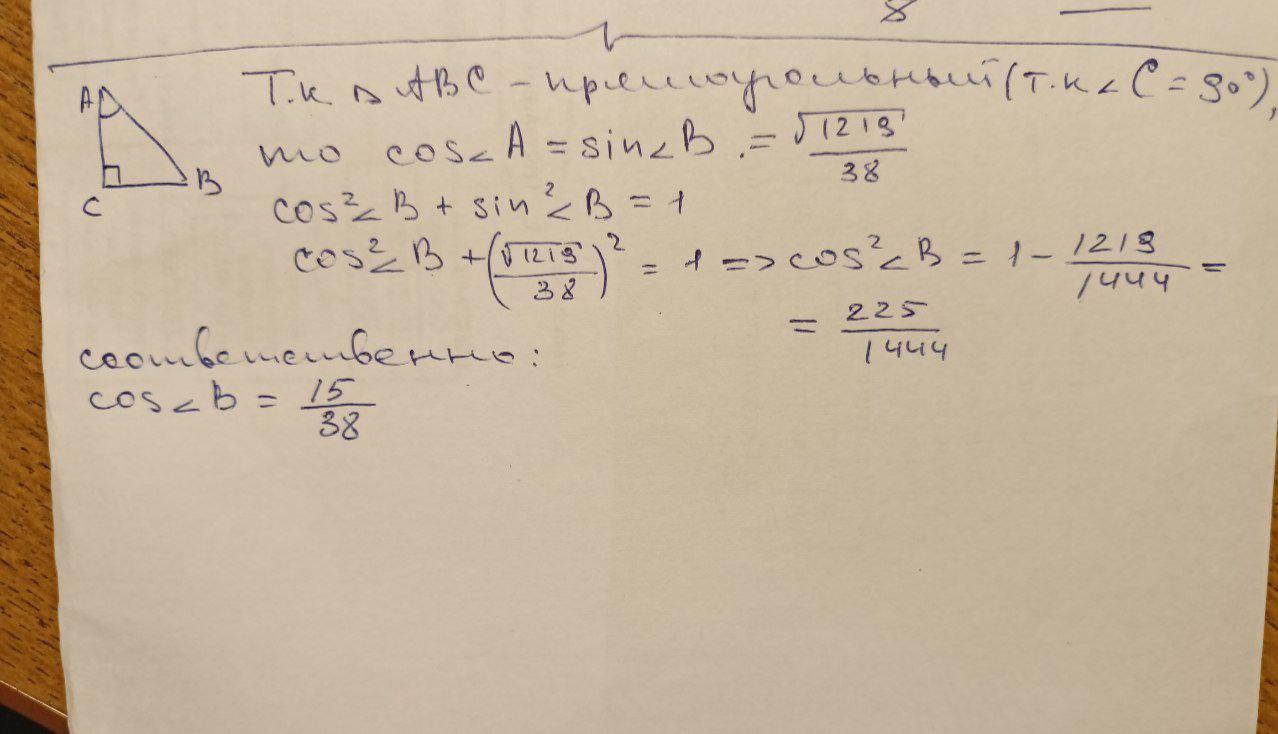 8
A
C
B
Т.к △ ABC – прямоугольный (т.к ∠ C = 90°),
то cos∠A = sin∠B .= √1219/38
cos²∠B + sin²∠B = 1
cos²∠B + (√1219/38)² = 1 => cos²∠B = 1 - 1219/1444 =
= 225/1444
соответственно:
cos∠B = 15/38